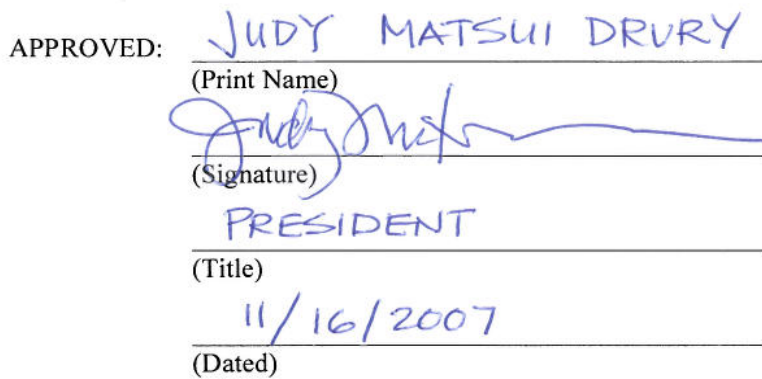 APPROVED: JUDY MATSUI DRURY
(Print Name)
(Signature)
PRESIDENT
(Title)
11/16/2007
(Dated)